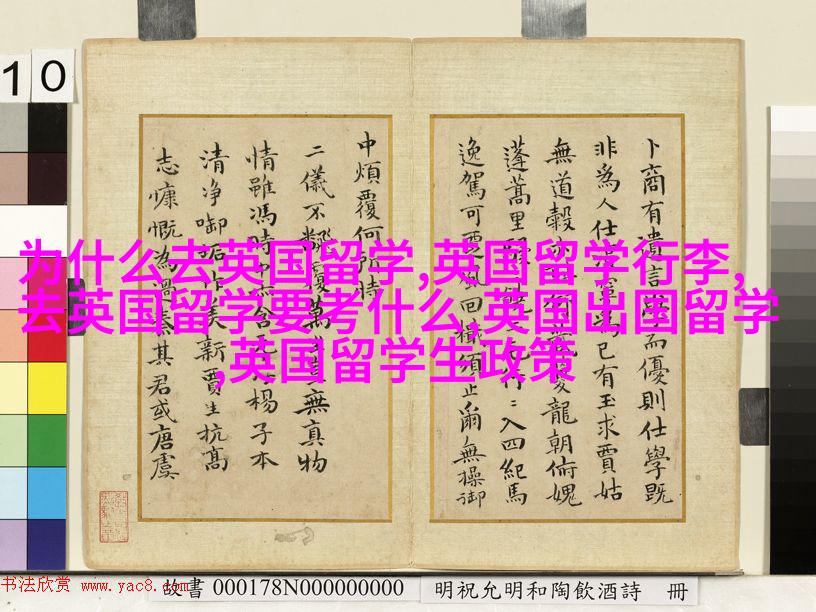 为什么去英国留学,英国留学行李,
去英国留学要考什么,英国出国留学
,英国留学生政策
10
卜商有遺言 而優則仕學既
非為人仕 己有玉求賈姑
無道穀 龍朝俯媿
蓬蒿里 入四紀馬
逸駕可 風回檝須止爾無操御
中煩覆何所時
二儀不 覆萬 無真物
情雖馮時 舍 楊子本
清净 美新賈生抗髙
志慷慨為 其君或唐虞
书法欣赏 www.yac8.com
故書 000178N000000000
明祝允明和陶飲酒詩 冊